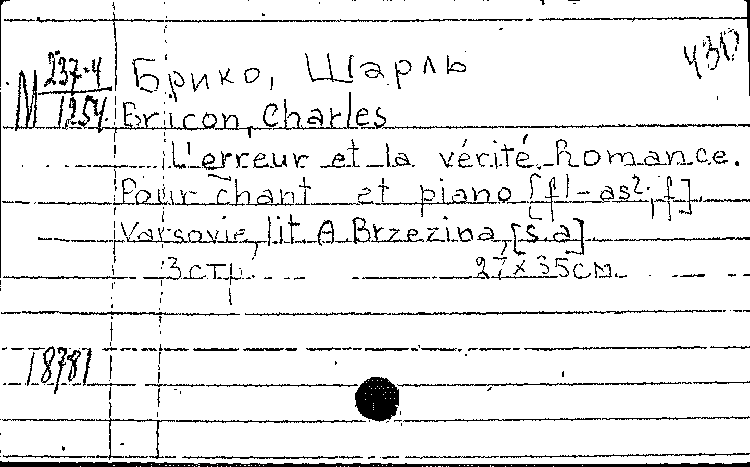 430
М 237-4
1254.
Брико, Шарль
Bricon, Charles
L'erreur et la vérité. Romance.
Pour chant et piano [f¹-as²; f].
Varsovie, lit. A. Brzezina, [s.a]
3 стр. 27 x 35 см.
18781